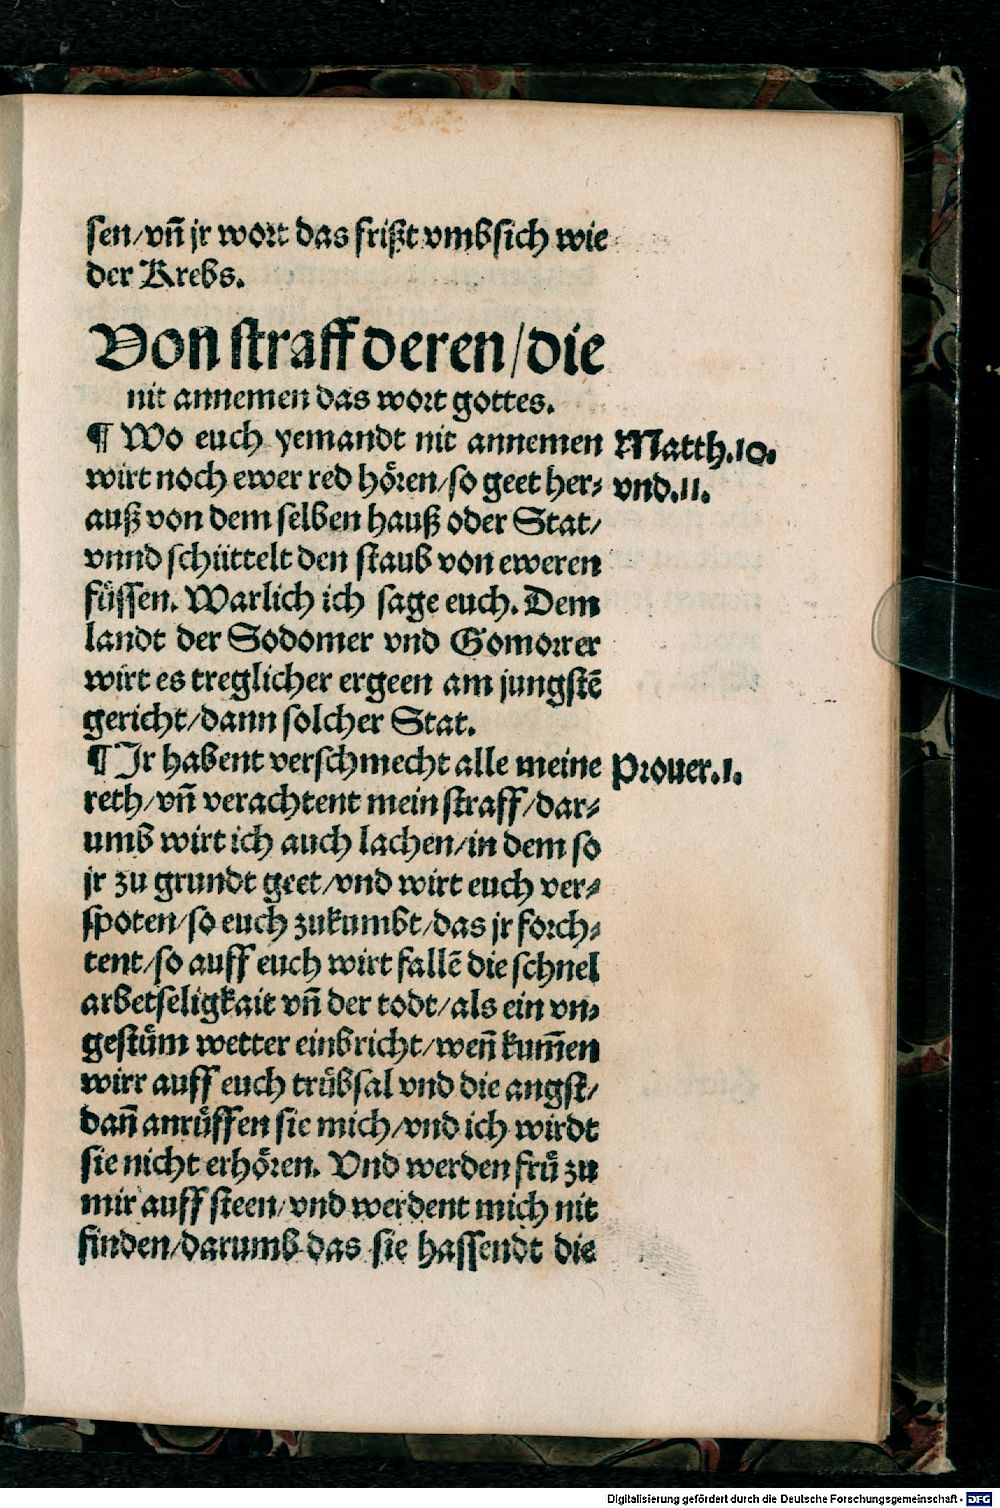 sen/vñ jr wort das frißt vmbsich wie
der Krebs.
Von straff deren/die
nit annemen das wort gottes.
¶ Wo euch yemandt nit annemen
wirt noch ewer red hoͤren/so geet her⸗
auß von dem selben hauß oder Stat/
vnnd schüttelt den staub von eweren
fuͤssen. Warlich ich sage euch. Dem
landt der Sodomer vnd Gomorrer
wirt es treglicher ergeen am jungstē
gericht/dann solcher Stat.
¶ Ir habent verschmecht alle meine
reth/vñ verachtent mein straff/dar⸗
umb wirt ich auch lachen/in dem so
jr zu grundt geet/vnd wirt euch ver⸗
spoten/so euch zukumbt/das jr forch⸗
tent/so auff euch wirt fallē die schnel
arbetseligkait vñ der todt/als ein vn⸗
gestuͤm wetter einbricht/weñ kum̄en
wirr auff euch truͤbsal vnd die angst/
dañ anruͤffen sie mich/vnd ich wirdt
sie nicht erhoͤren. Vnd werden fruͤ zu
mir auff steen/vnd werdent mich nit
finden/darumb das sie hassendt die
Matth.10.
vnd.11.
Prouer.1.
Digitalisierung gefördert durch die Deutsche Forschungsgemeinschaft - DFG